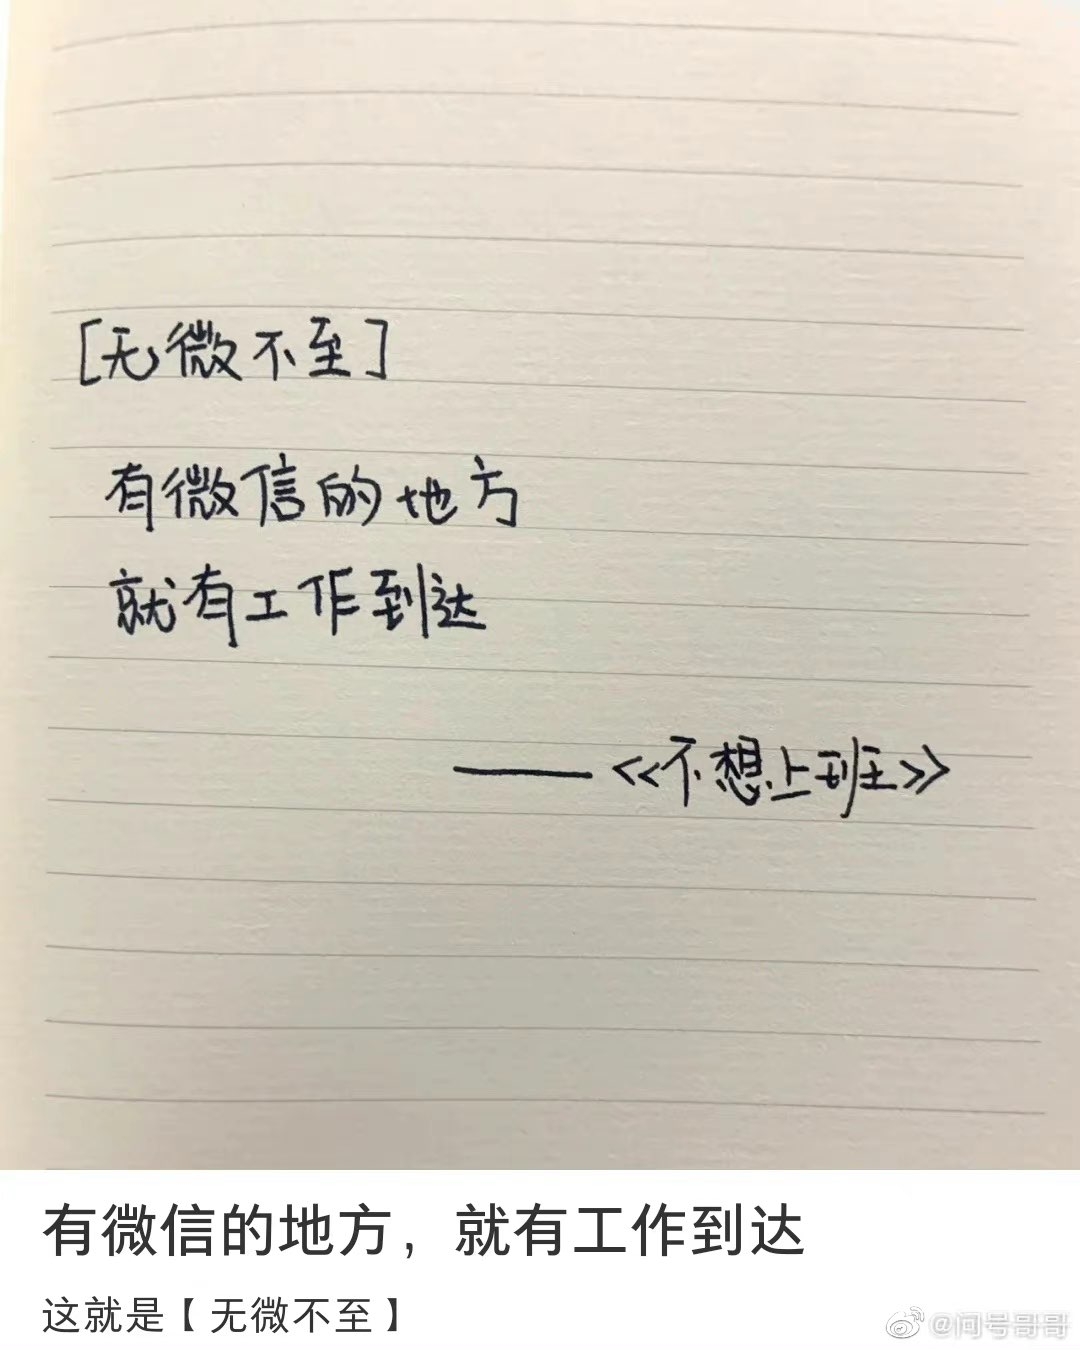 [无微不至]
有微信的地方
就有工作到达
——<<不想上班>>
有微信的地方，就有工作到达
这就是【无微不至】
@问号哥哥